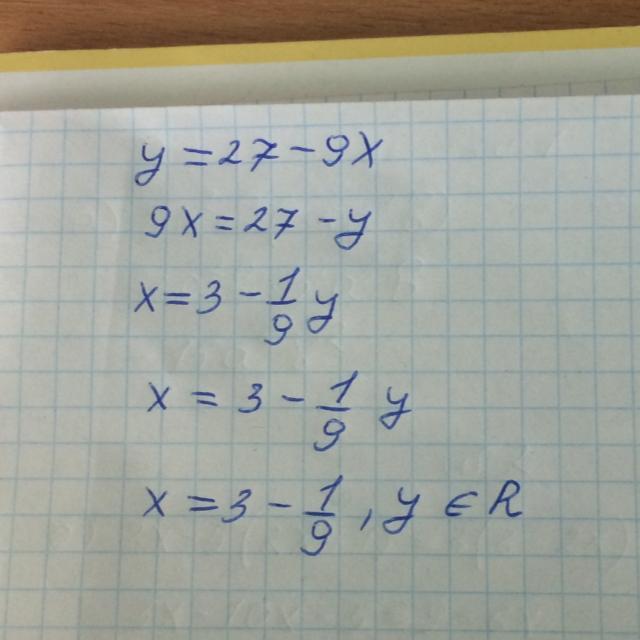 y = 27 - 9x
9x = 27 - y
x = 3 - 1/9 y
x = 3 - 1/9 y
x = 3 - 1/9, y ∈ R